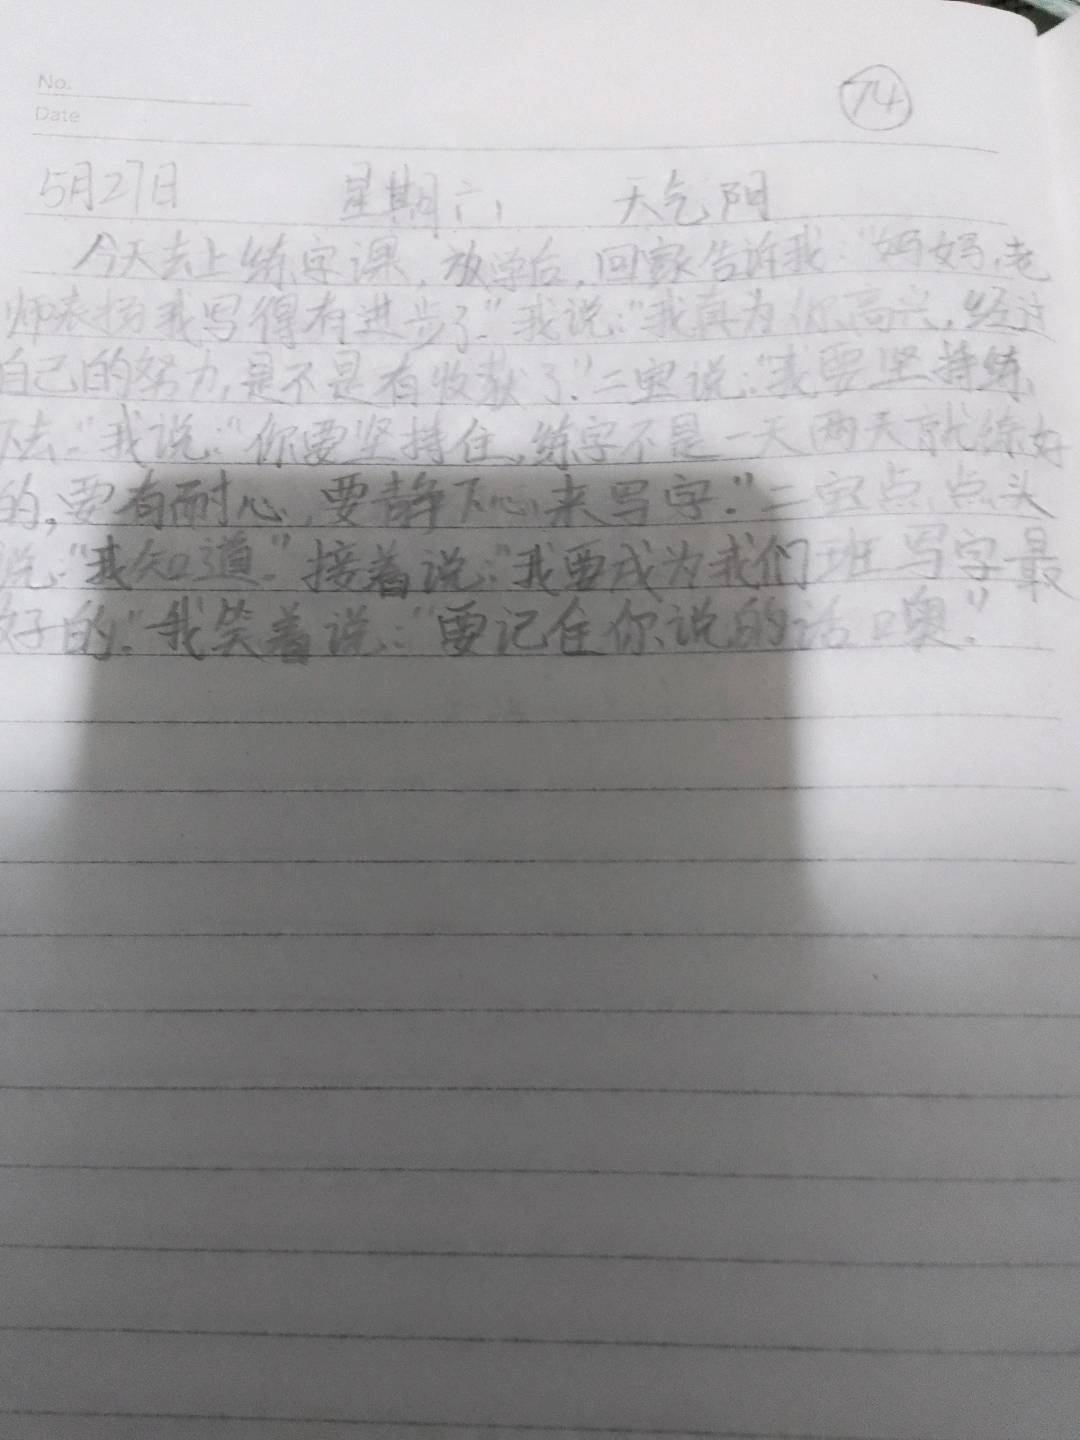 No.
74
Date
5月27日 星期六 天气阴
今天去上练字课,放学后,回家告诉我:"妈妈,老
师表扬我写得有进步了."我说:"我真为你高兴,经过
自己的努力,是不是有收获了."二宝说:"我要坚持练
下去."我说:"你要坚持住,练字不是一天两天就练好
的,要有耐心,要静下心来写字."二宝点点头
说:"我知道."接着说:"我要成为我们班写字最
好的."我笑着说:"要记住你说的话噢."